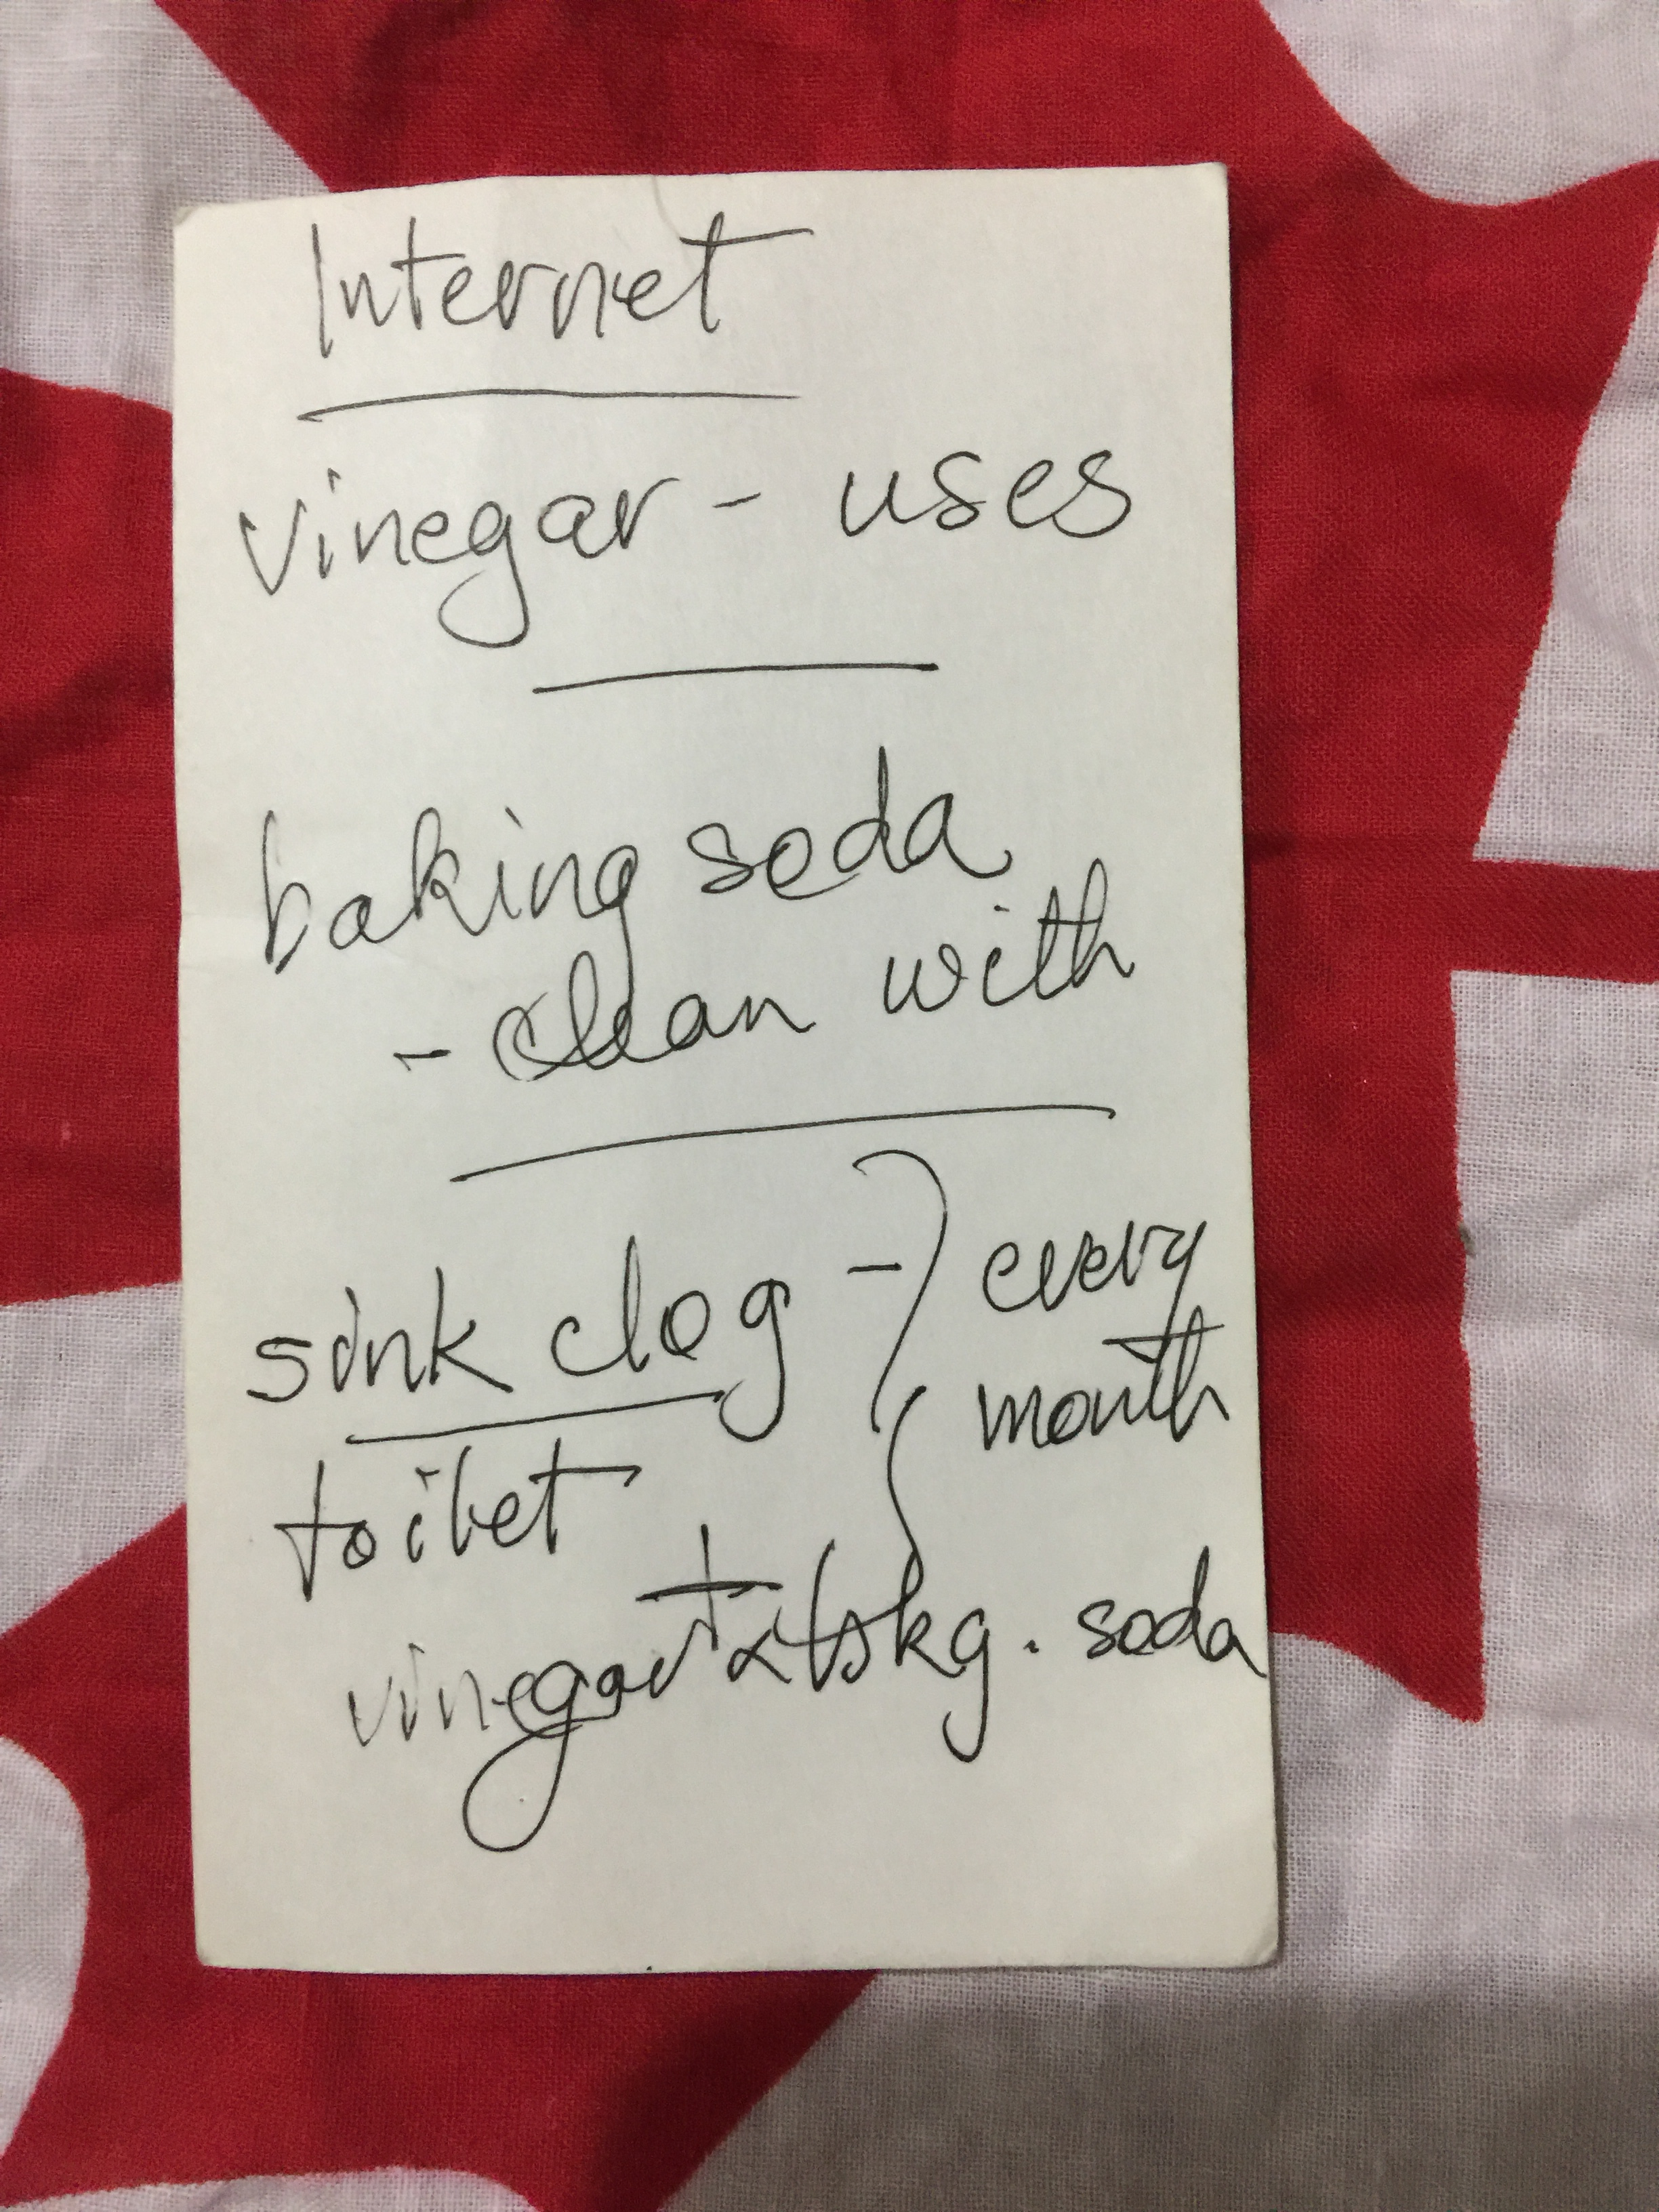 Internet
vinegar - uses
baking soda
- clean with
sink clog - every
month
toilet
vinegar + bkg. soda